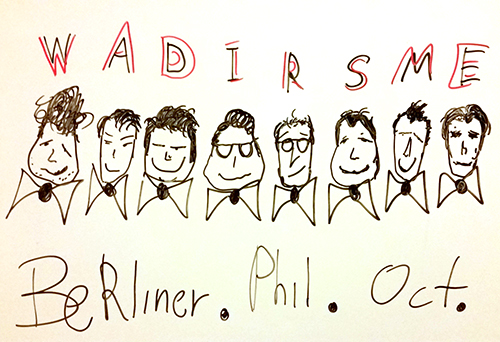 WADIRSME
BeRliner. Phil. Oct.